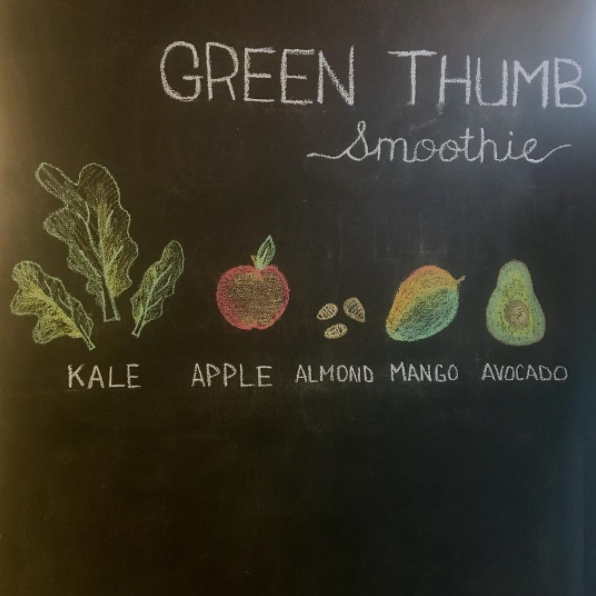 GREEN THUMB
Smoothie
KALE APPLE ALMOND MANGO AVOCADO